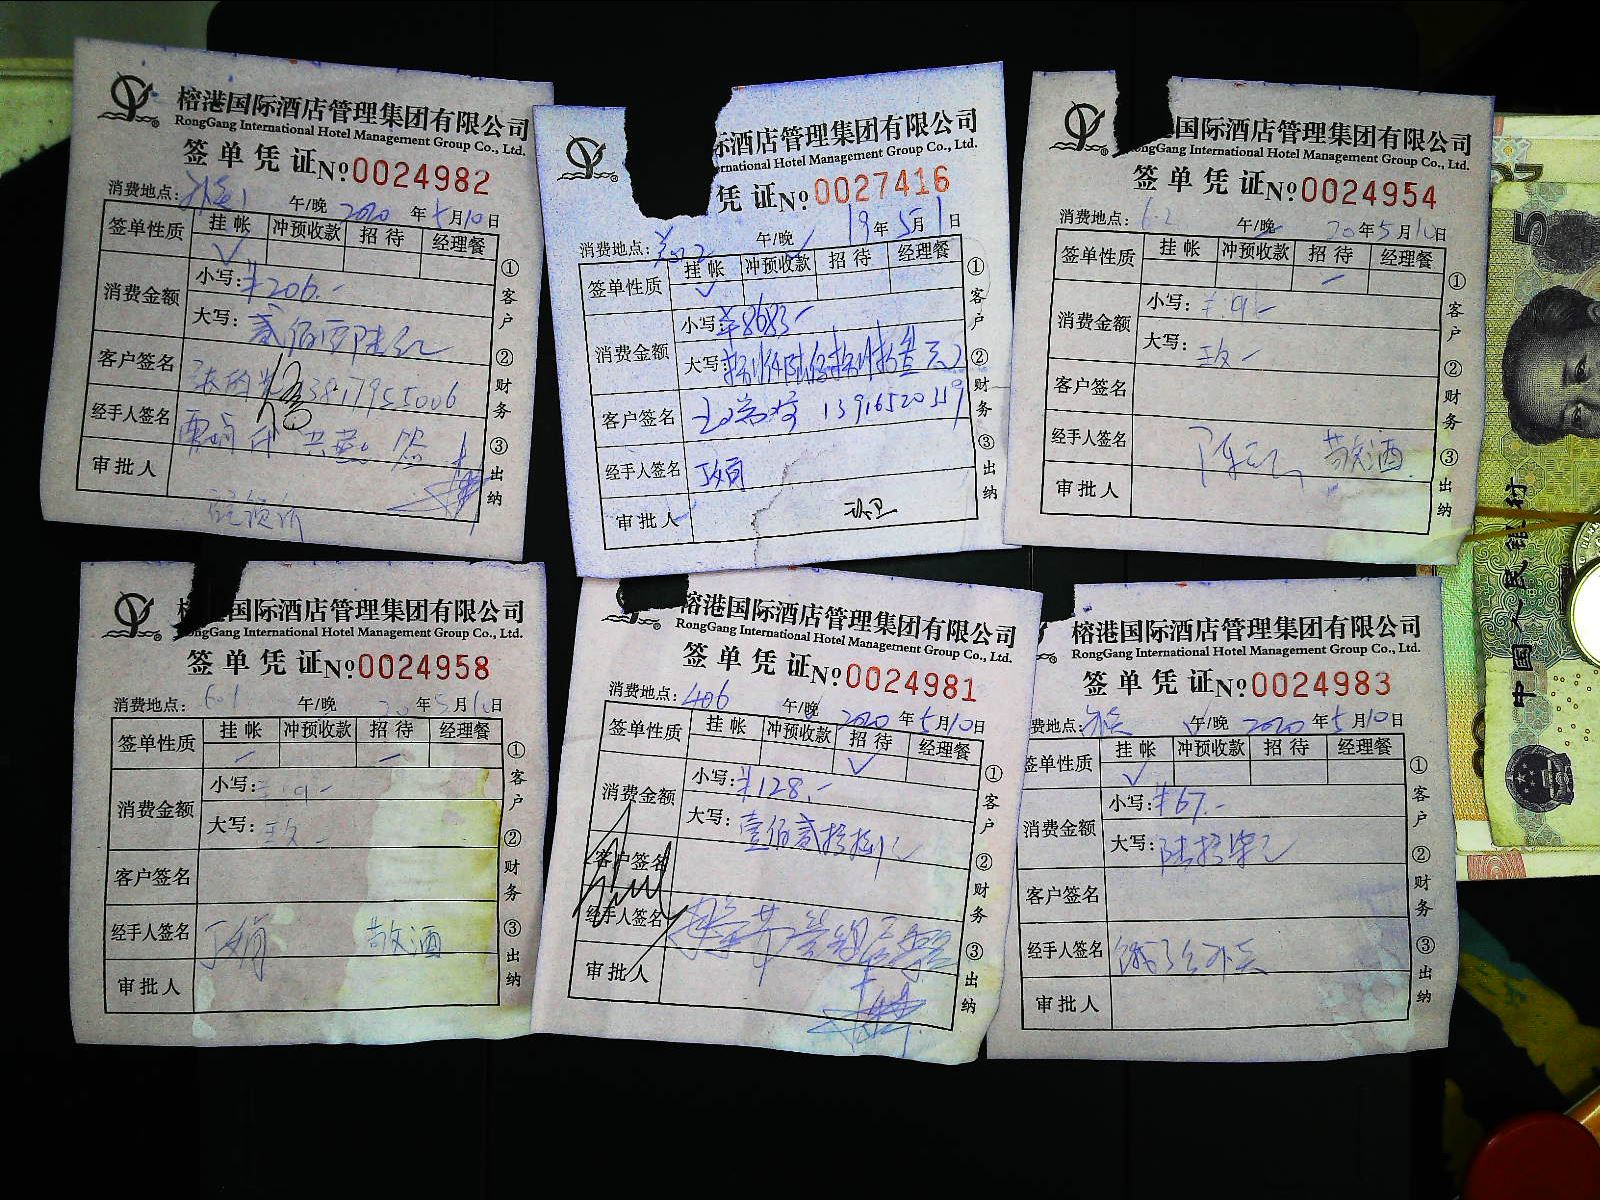 榕港国际酒店管理集团有限公司
RongGang International Hotel Management Group Co., Ltd.
签单凭证No 0024982
消费地点: 午/晚 2020年5月10日
签单性质 挂帐 冲预收款 招待 经理餐
√
消费金额 小写: ¥206.-
大写: 贰佰零陆元
客户签名 13817955006
经手人签名
审批人
①客户 ②财务 ③出纳
际酒店管理集团有限公司
rnational Hotel Management Group Co., Ltd.
凭证No 0027416
消费地点: 午/晚 19年5月1日
签单性质 挂帐 冲预收款 招待 经理餐
√
消费金额 小写: ¥8683-
大写:
客户签名 13916520319
经手人签名
审批人
①客户 ②财务 ③出纳
国际酒店管理集团有限公司
ongGang International Hotel Management Group Co., Ltd.
签单凭证No 0024954
消费地点: 6-2 午/晚 20年5月10日
签单性质 挂帐 冲预收款 招待 经理餐
消费金额 小写:
大写:
客户签名
经手人签名 敬酒
审批人
①客户 ②财务 ③出纳
榕港国际酒店管理集团有限公司
ongGang International Hotel Management Group Co., Ltd.
签单凭证No 0024958
消费地点: 601 午/晚 20年5月10日
签单性质 挂帐 冲预收款 招待 经理餐
消费金额 小写:
大写:
客户签名
经手人签名 敬酒
审批人
①客户 ②财务 ③出纳
榕港国际酒店管理集团有限公司
RongGang International Hotel Management Group Co., Ltd.
签单凭证No 0024981
消费地点: 406 午/晚 2020年5月10日
签单性质 挂帐 冲预收款 招待 经理餐
√
消费金额 小写: ¥128.-
大写: 壹佰贰拾捌元
客户签名
经手人签名
审批人
①客户 ②财务 ③出纳
榕港国际酒店管理集团有限公司
RongGang International Hotel Management Group Co., Ltd.
签单凭证No 0024983
费地点: 午/晚 2020年5月10日
签单性质 挂帐 冲预收款 招待 经理餐
√
消费金额 小写: ¥67.-
大写: 陆拾柒元
客户签名
经手人签名
审批人
①客户 ②财务 ③出纳
5
中国人民银行